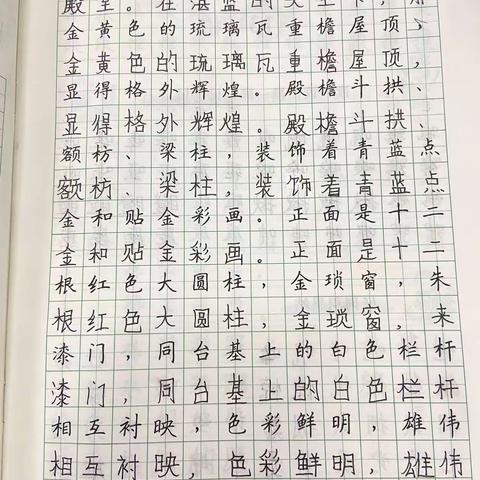 殿堂。在湛蓝的天空下，那
金黄色的琉璃瓦重檐屋顶，
金黄色的琉璃瓦重檐屋顶，
显得格外辉煌。殿檐斗拱、
显得格外辉煌。殿檐斗拱、
额枋、梁柱，装饰着青蓝点
额枋、梁柱，装饰着青蓝点
金和贴金彩画。正面是十二
金和贴金彩画。正面是十二
根红色大圆柱，金琐窗，朱
根红色大圆柱，金琐窗，来
漆门，同台基上的白色栏杆
漆门，同台基上的白色栏杆
相互衬映，色彩鲜明，雄伟
相互衬映，色彩鲜明，雄伟